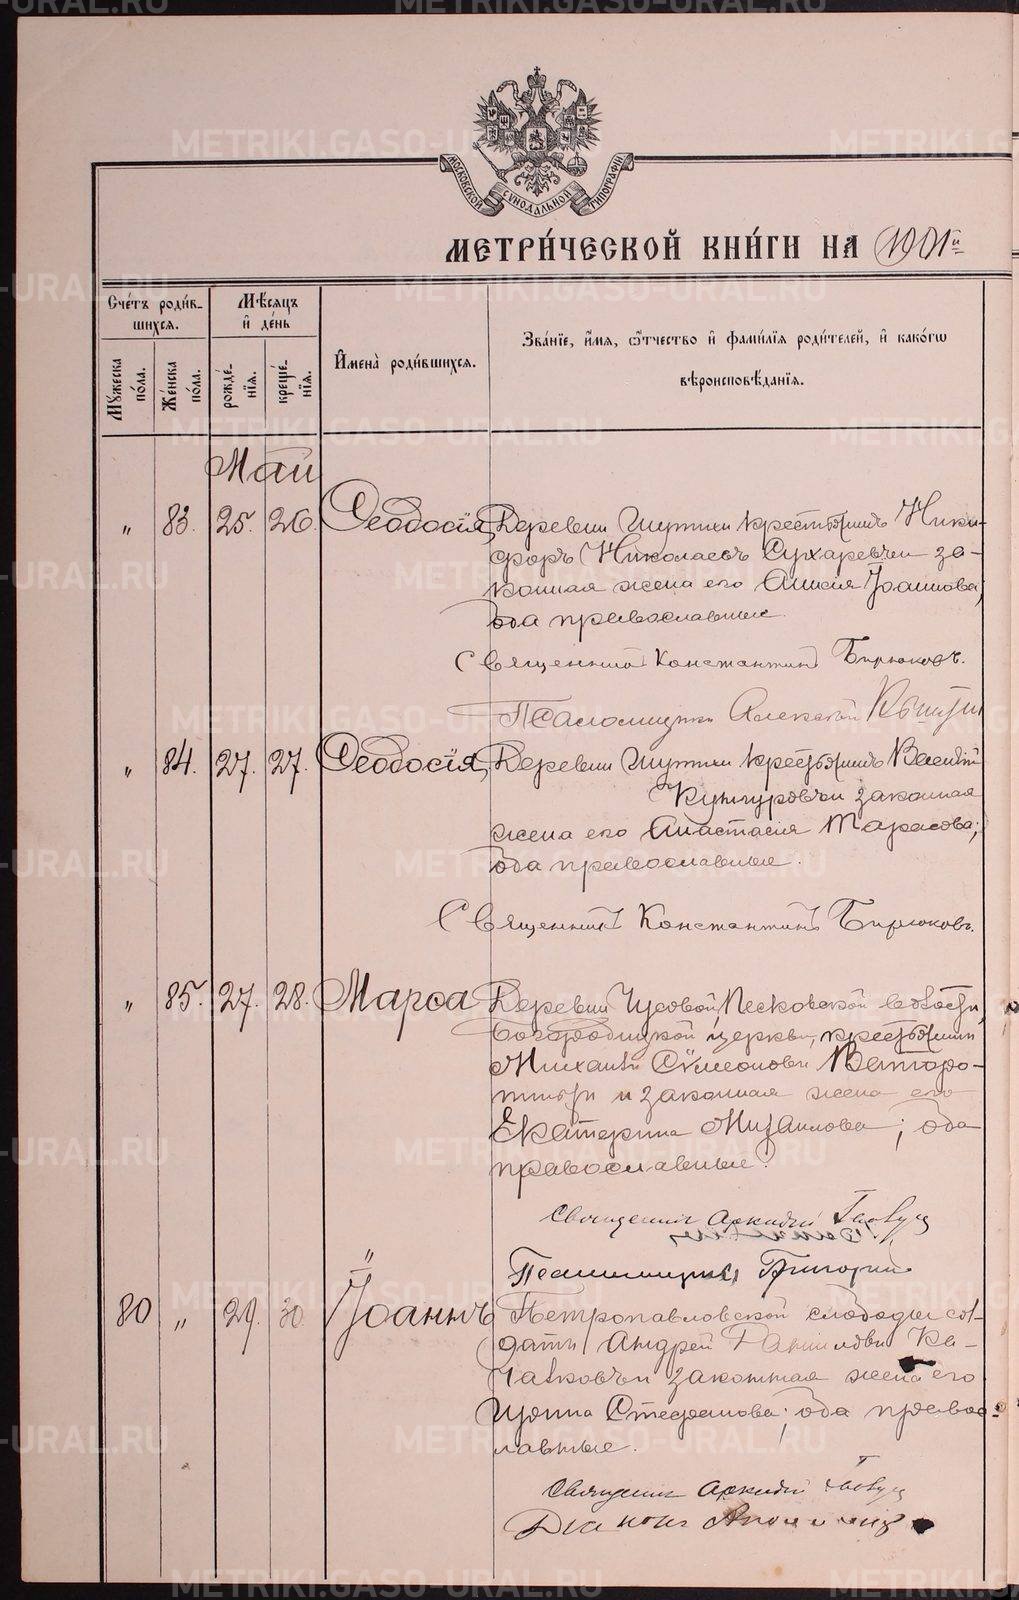 МОСКОВСКОЙ СУНОДАЛЬНОЙ ТИПОГРАФІИ
МЕТРИ́ЧЕСКОЙ КНИ́ГИ НА 1901й
Сче́тъ роди́в-
шихся.
Мѣ́сяцъ
и де́нь
Имена̀ роди́вшихся.
Зва́нїе, и́мя, ѻ́тчество и фами́лїя роди́телей, и како́гѡ
вѣроисповѣ́данїя.
Му́жеска по́ла.
Же́нска по́ла.
рожде́нїя.
креще́нїя.
Май
„ 83. 25. 26. Ѳеодосія, Деревни Шутихи крестьянинъ Ники-
форъ Николаевъ Сухаревъ и за-
конная жена его Анисія Іоаннова,
оба православные
Священникъ Константинъ Бирюковъ.
Псаломщикъ Алексѣй
„ 84. 27. 27. Ѳеодосія, Деревни Шутихи крестьянинъ Василій
Кунгуровъ и законная
жена его Анастасія Тарасова;
оба православные.
Священникъ Константинъ Бирюковъ.
„ 85. 27. 28. Марѳа Деревни Чусовой, Песковской волости,
Богородицкой церкви, крестьянинъ
Михаилъ Сѵмеоновъ
и законная жена его
Екатерина Михаилова; оба
православные.
Священникъ Аркадій
Псаломщикъ Григорій
80 „ 29. 30. Іоаннъ Петропавловской слободы сол-
датъ Андрей Данииловъ Ка-
чалковъ и законная жена его
Ирина Стефанова; оба правос-
лавные.
Священникъ Аркадій
Діаконъ